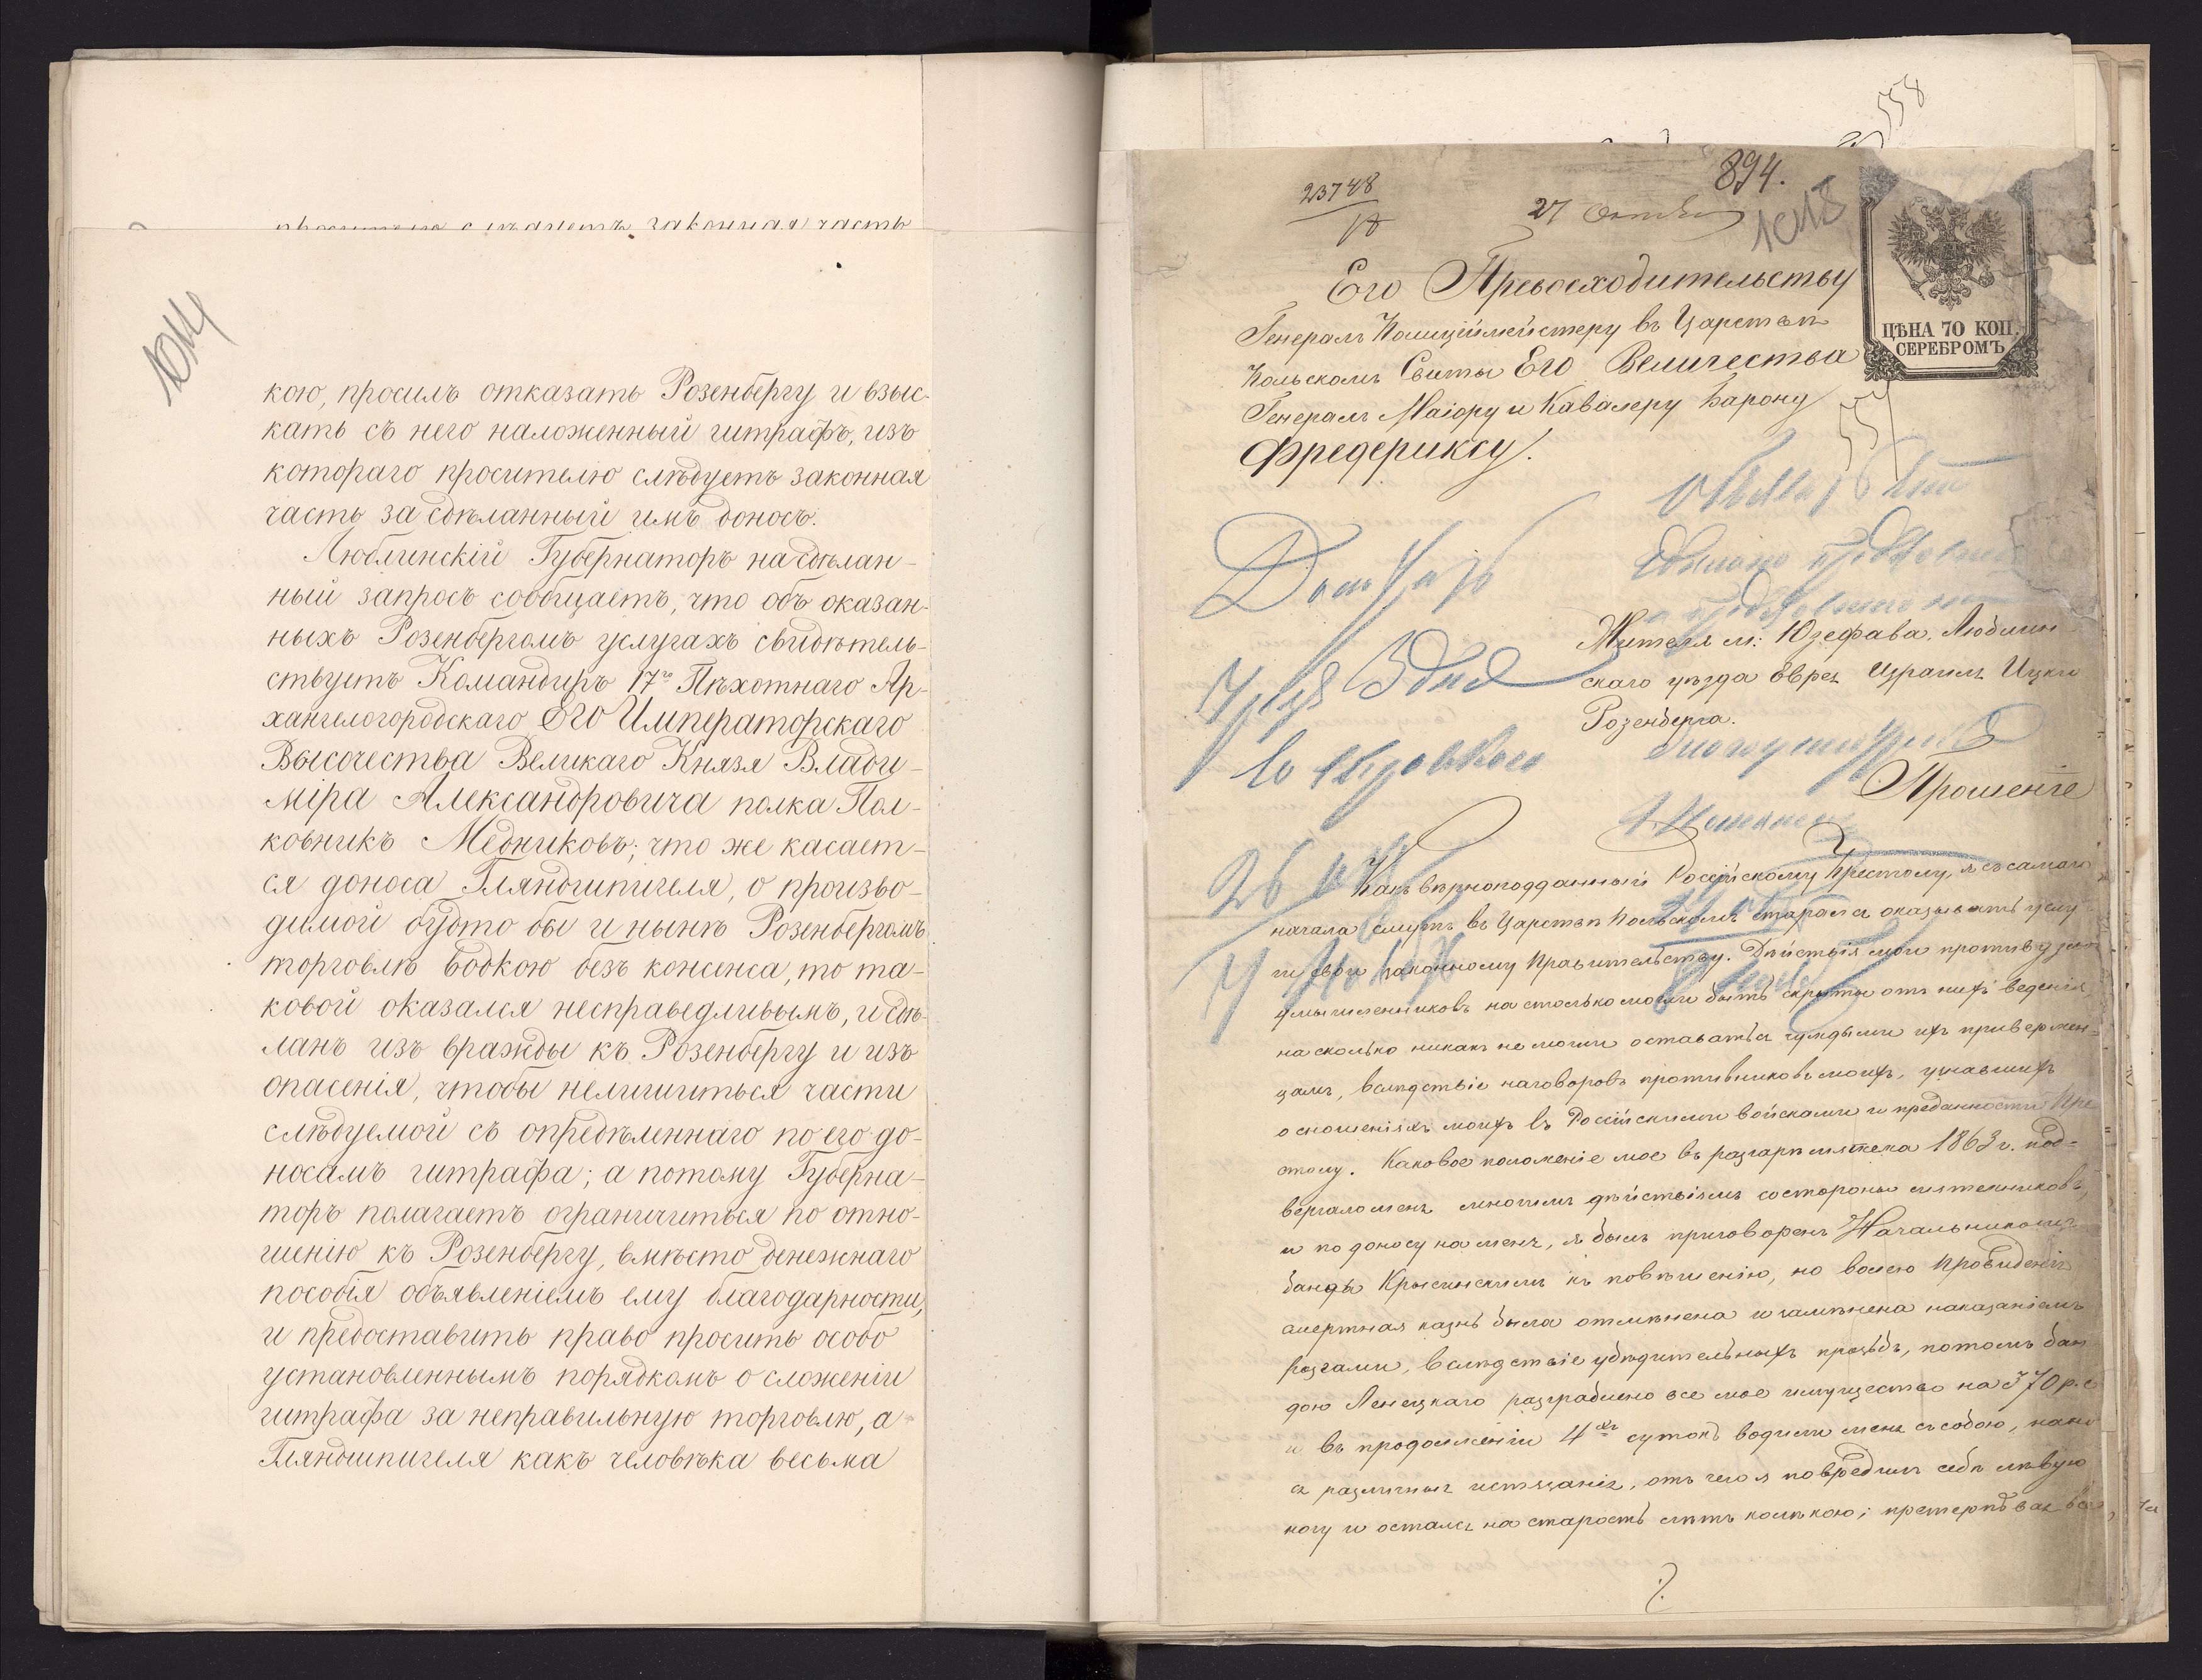 просителю слѣдуетъ законная часть
1014
кою, просилъ отказать Розенбергу и взыс-
кать съ него наложенный штрафъ, изъ
котораго просителю слѣдуетъ законная
часть за сдѣланный имъ доносъ.
Люблинскій Губернаторъ на сдѣлан-
ный запросъ сообщаетъ, что объ оказан-
ныхъ Розенбергомъ услугахъ свидѣтель-
ствуетъ Командиръ 17го Пѣхотнаго Ар-
хангелогородскаго Его Императорскаго
Высочества Великаго Князя Влади-
міра Александровича полка Пол-
ковникъ Медниковъ; что же касает-
ся доноса Гляндшпигеля, о произво-
димой будто бы и нынѣ Розенбергомъ
торговлѣ водкою безъ консенса, то та-
ковой оказался несправедливымъ, и сдѣ-
ланъ изъ вражды къ Розенбергу и изъ
опасенія, чтобы нелишиться части
слѣдуемой съ опредѣленнаго по его до-
носамъ штрафа; а потому Губерна-
торъ полагаетъ ограничиться по отно-
шенію къ Розенбергу, вмѣсто денежнаго
пособія объявленіемъ ему благодарности,
и предоставить право просить особо
установленнымъ порядкомъ о сложеніи
штрафа за неправильную торговлю, а
Гляндшпигеля какъ человѣка весьма
558
894.
23748
27 Октября
1015
Его Превосходительству
Генералъ Полиціймейстеру въ Царствѣ
Польскомъ Свиты Его Величества
Генералъ Маіору и Кавалеру Барону
Фредериксу.
ЦѢНА 70 КОП.
СЕРЕБРОМЪ
Жителя м: Юзефава, Люблин
скаго уѣзда Еврея Израиля Ицки
Розенберга.
Прошеніе
Какъ вѣрноподданный Россійскому Престолу, я съ самаго
начала смутъ въ Царствѣ Польскомъ старался оказывать услу-
ги свои законному Правительству. Дѣйствія мои противъ зло-
умышленниковъ на столько могли быть скрыты отъ нихъ веденія,
на сколько никакъ не могли оставаться чуждыми ихъ привержен-
цамъ, вслѣдствіе наговоровъ противниковъ моихъ, узнавшихъ
о сношеніяхъ моихъ съ Россійскими войсками и преданности Пре
столу. Каковое положеніе мое въ разгарѣ мятежа 1863 г. под=
вергало меня многимъ дѣйствіямъ состороны мятежниковъ,
и по доносу на меня, я былъ приговоренъ Начальникомъ
банды Крысинскимъ къ повѣшенію, но волею Провидѣнія
смертная казнь была отмѣнена и замѣнена наказаніемъ
розгами, вслѣдствіе убѣдительныхъ просьбъ, потомъ бан
дою Ленецкаго разграблено все мое имущество на 370 р. с
и въ продолженіи 4хъ сутокъ водили меня съ собою, нано
ся различныя истязанія, отъ чего я повредилъ себѣ лѣвую
ногу и остался на старость лѣтъ колѣкою; претерпѣвая